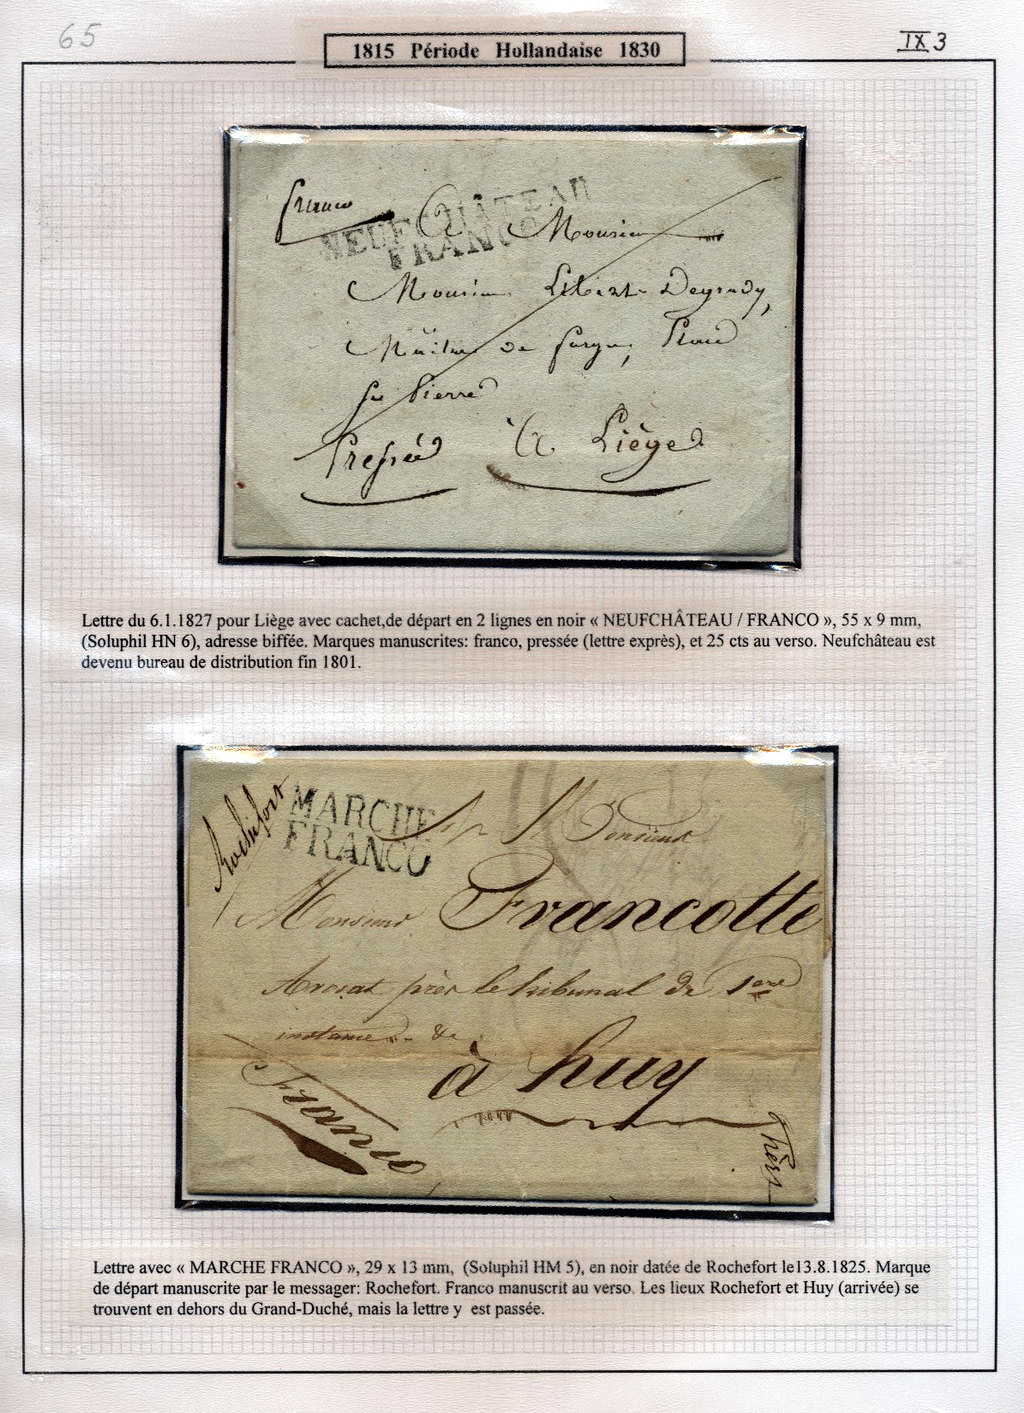 65
1815 Période Hollandaise 1830
IX 3
franco
NEUFCHÂTEAU
FRANCO
A Monsieur
Monsieur Libert Degrady,
Maître de forges, Place
St Pierre
Pressée A Liège
Lettre du 6.1.1827 pour Liège avec cachet,de départ en 2 lignes en noir « NEUFCHÂTEAU / FRANCO », 55 x 9 mm,
(Soluphil HN 6), adresse biffée. Marques manuscrites: franco, pressée (lettre exprès), et 25 cts au verso. Neufchâteau est
devenu bureau de distribution fin 1801.
Rochefort
MARCHE
FRANCO
Monsieur
Monsieur Francotte
Avocat près le tribunal de 1ere
instance &c
à huy
Franco
Lettre avec « MARCHE FRANCO », 29 x 13 mm, (Soluphil HM 5), en noir datée de Rochefort le13.8.1825. Marque
de départ manuscrite par le messager: Rochefort. Franco manuscrit au verso. Les lieux Rochefort et Huy (arrivée) se
trouvent en dehors du Grand-Duché, mais la lettre y est passée.